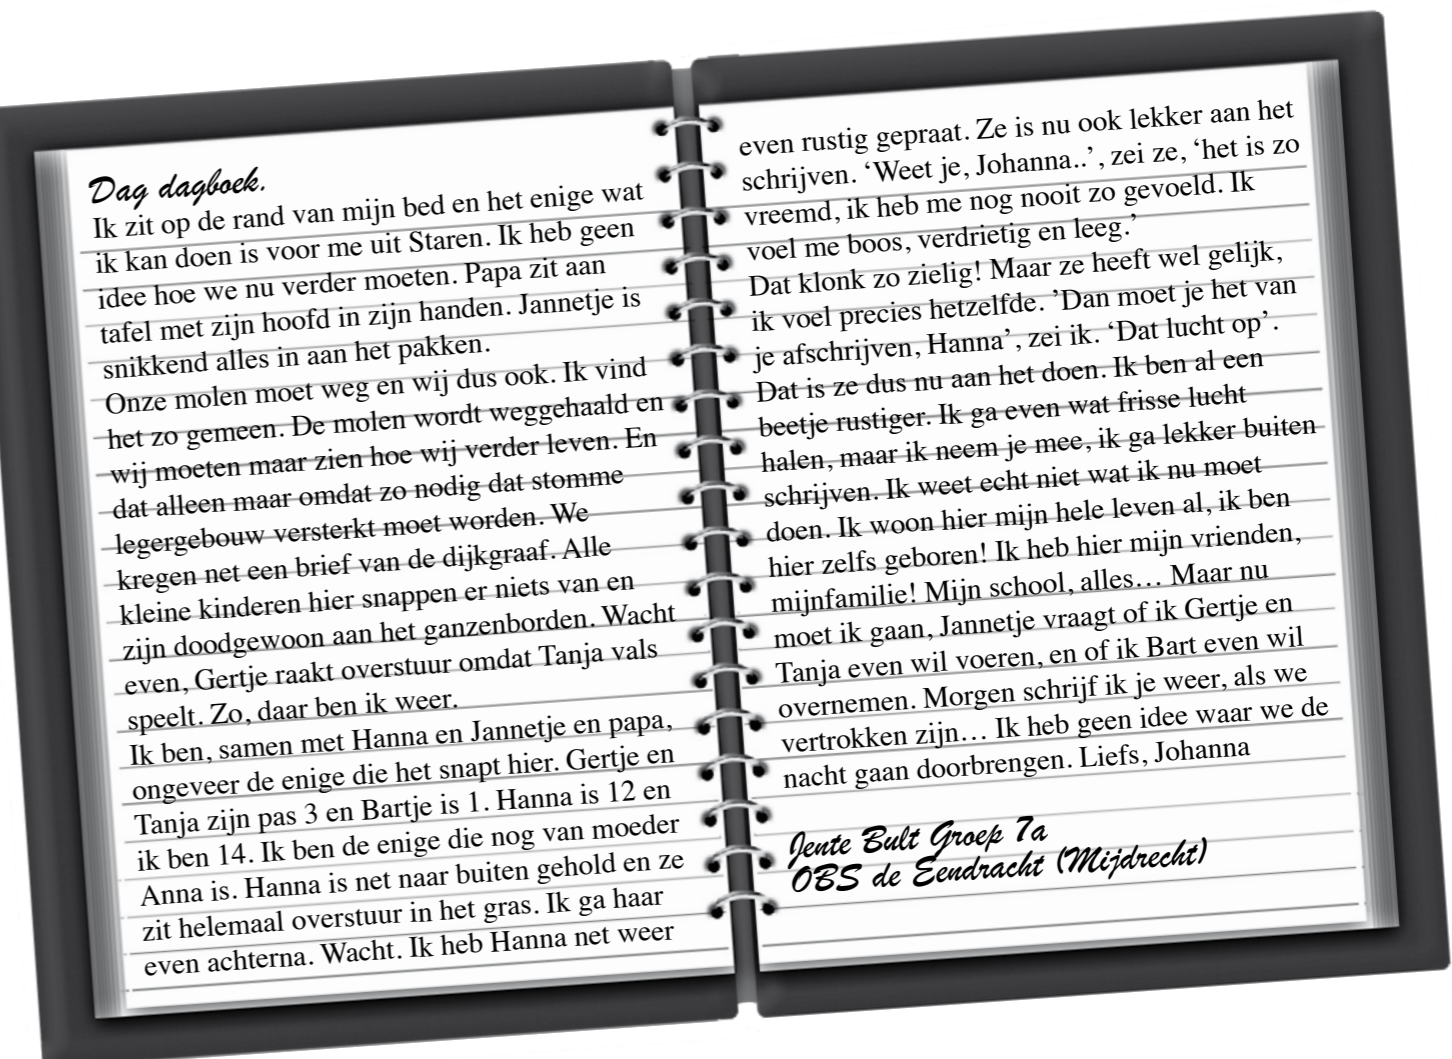 Dag dagboek.
Ik zit op de rand van mijn bed en het enige wat
ik kan doen is voor me uit Staren. Ik heb geen
idee hoe we nu verder moeten. Papa zit aan
tafel met zijn hoofd in zijn handen. Jannetje is
snikkend alles in aan het pakken.
Onze molen moet weg en wij dus ook. Ik vind
het zo gemeen. De molen wordt weggehaald en
wij moeten maar zien hoe wij verder leven. En
dat alleen maar omdat zo nodig dat stomme
legergebouw versterkt moet worden. We
kregen net een brief van de dijkgraaf. Alle
kleine kinderen hier snappen er niets van en
zijn doodgewoon aan het ganzenborden. Wacht
even, Gertje raakt overstuur omdat Tanja vals
speelt. Zo, daar ben ik weer.
Ik ben, samen met Hanna en Jannetje en papa,
ongeveer de enige die het snapt hier. Gertje en
Tanja zijn pas 3 en Bartje is 1. Hanna is 12 en
ik ben 14. Ik ben de enige die nog van moeder
Anna is. Hanna is net naar buiten gehold en ze
zit helemaal overstuur in het gras. Ik ga haar
even achterna. Wacht. Ik heb Hanna net weer
even rustig gepraat. Ze is nu ook lekker aan het
schrijven. ‘Weet je, Johanna..’, zei ze, ‘het is zo
vreemd, ik heb me nog nooit zo gevoeld. Ik
voel me boos, verdrietig en leeg.’
Dat klonk zo zielig! Maar ze heeft wel gelijk,
ik voel precies hetzelfde. ’Dan moet je het van
je afschrijven, Hanna’, zei ik. ‘Dat lucht op’.
Dat is ze dus nu aan het doen. Ik ben al een
beetje rustiger. Ik ga even wat frisse lucht
halen, maar ik neem je mee, ik ga lekker buiten
schrijven. Ik weet echt niet wat ik nu moet
doen. Ik woon hier mijn hele leven al, ik ben
hier zelfs geboren! Ik heb hier mijn vrienden,
mijnfamilie! Mijn school, alles… Maar nu
moet ik gaan, Jannetje vraagt of ik Gertje en
Tanja even wil voeren, en of ik Bart even wil
overnemen. Morgen schrijf ik je weer, als we
vertrokken zijn… Ik heb geen idee waar we de
nacht gaan doorbrengen. Liefs, Johanna
Jente Bult Groep 7a
OBS de Eendracht (Mijdrecht)